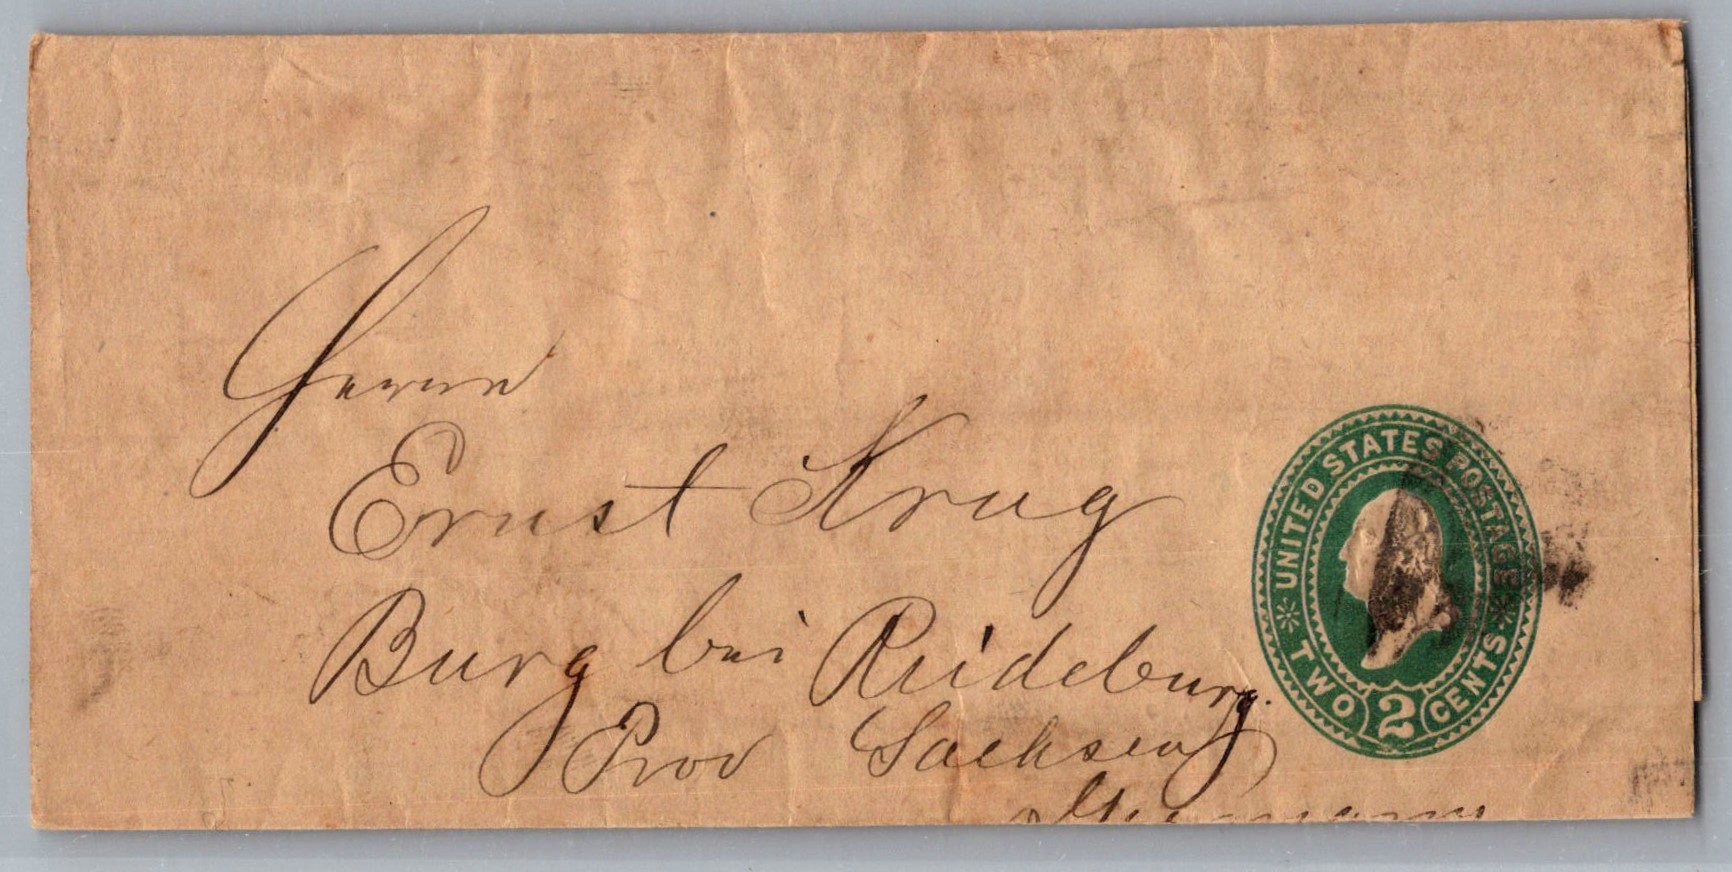 Herrn
Ernst Krug
Burg bei Reideburg.
Prov Sachsen
Germany
UNITED STATES POSTAGE
TWO 2 CENTS